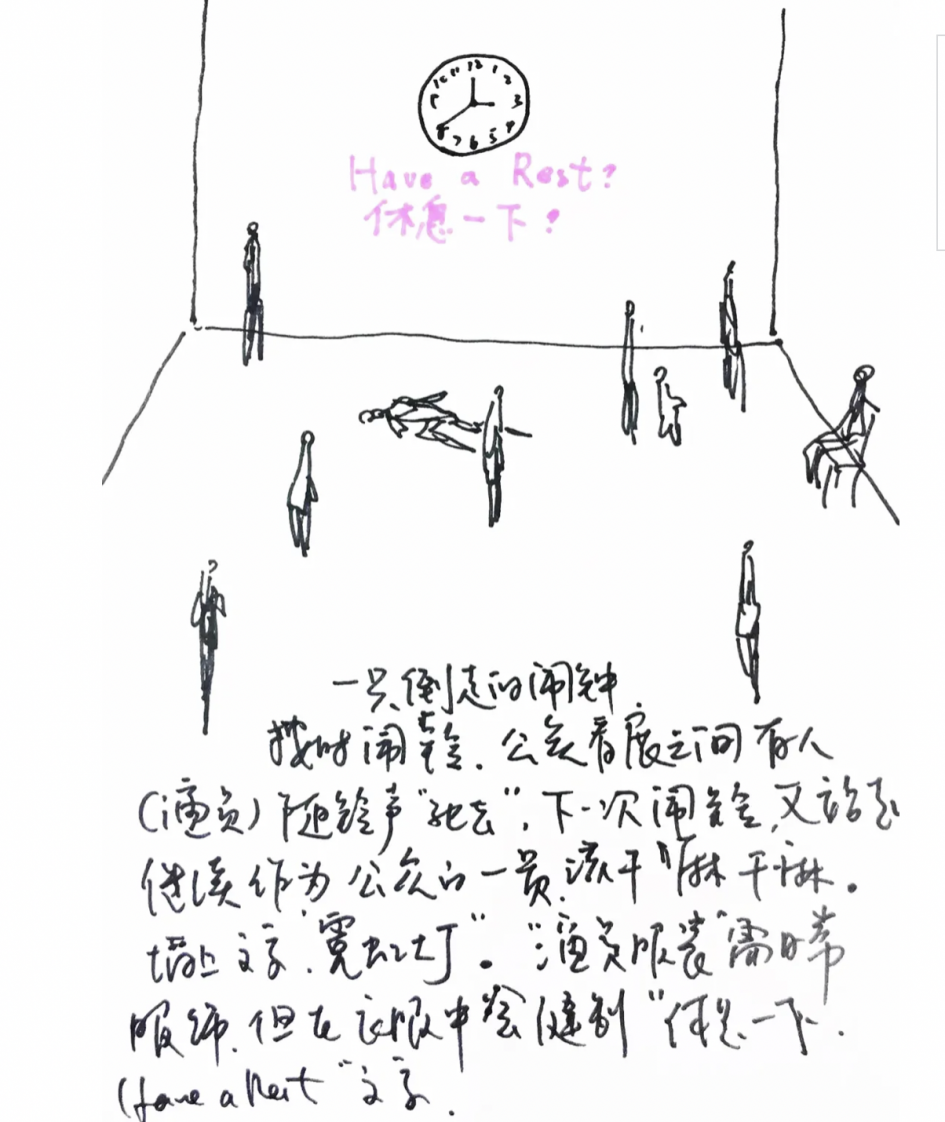 12 1 2 3 4 5 6 7 8 9 10 11
Have a Rest?
休息一下?
一只倒走的闹钟
按时闹铃.公众看展之间有人
(演员)随铃声"死去",下一次闹铃,又站起
继续作为公众的一员.该干嘛干嘛。
墙上文字.霓虹灯"。"演员服装"需日常
服饰.但在衣服中会缝制"休息一下.
Have a Rest"文字.